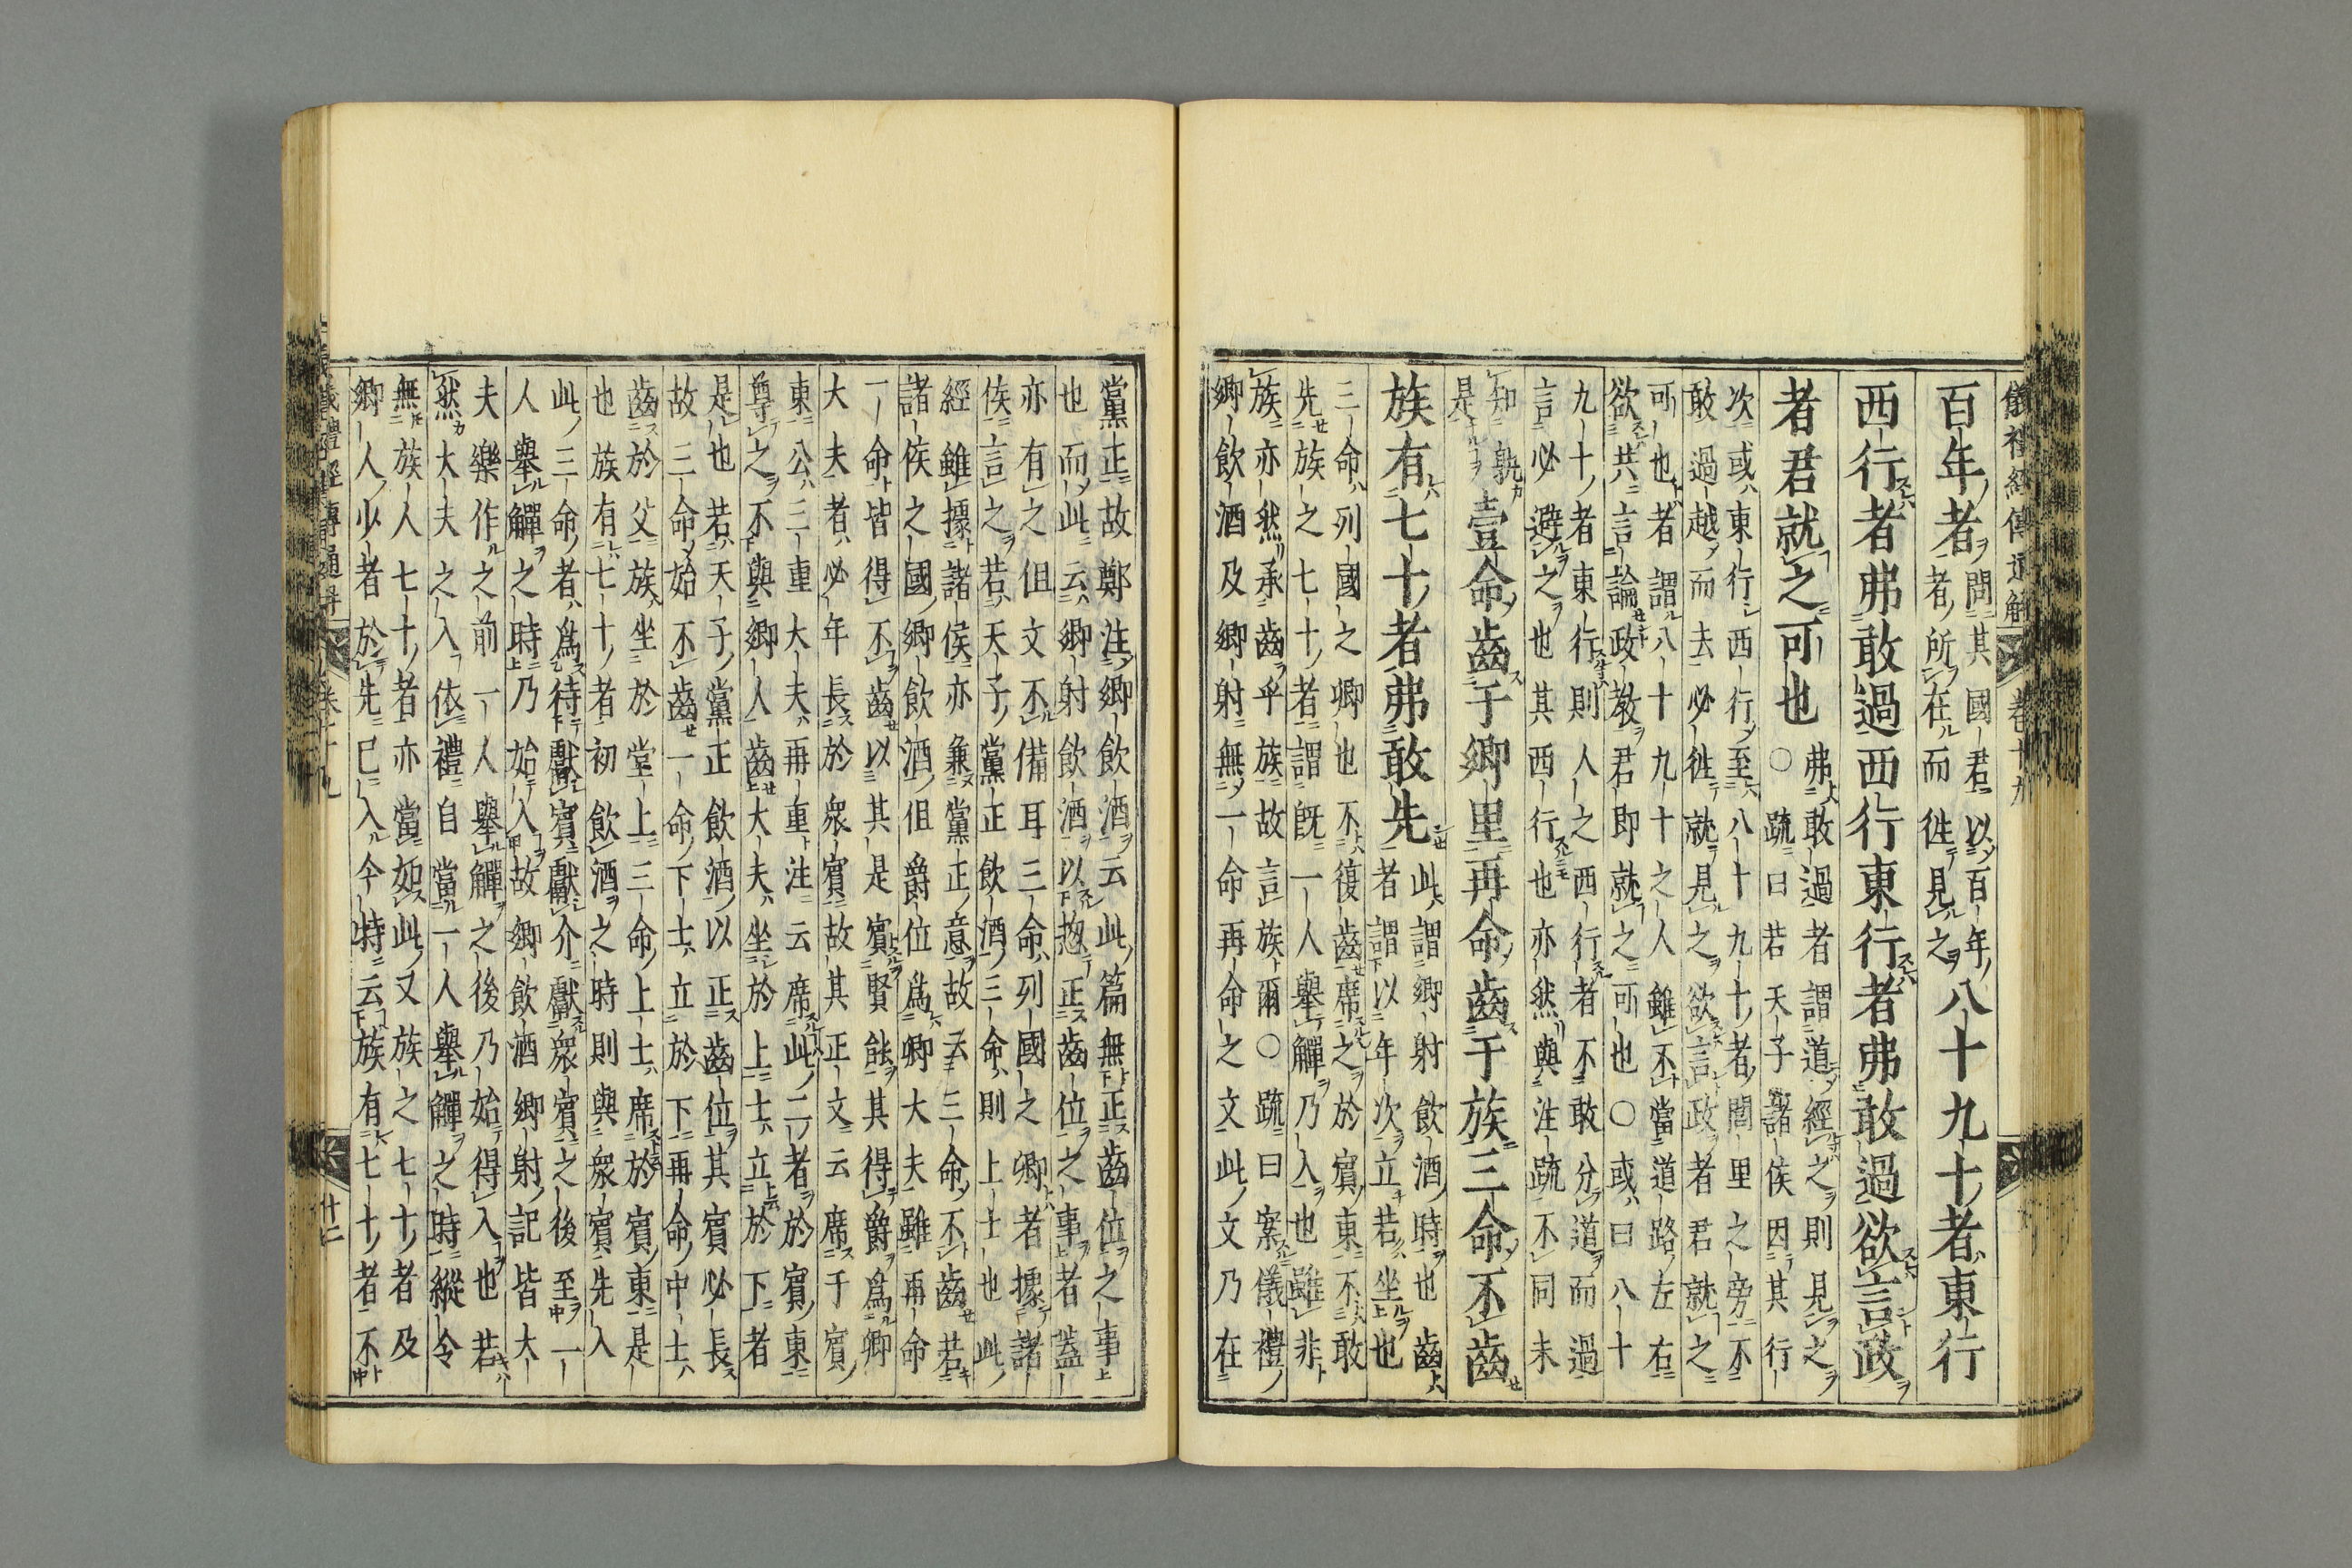 儀禮經傳通解 卷十九
百年者問其國君以百年
者所在而徃見之八十九十者東行
西行者弗敢過西行東行者弗敢過欲言政
者君就之可也弗敢過者謂道經之則見之
○疏曰若天子諸侯因其行
次或東行西行至八十九十者閭里之旁不
敢過越而去必徃就見之欲言政者君就之
可也者謂八十九十之人雖不當道路左右
欲共言論政教君即就之可也○或曰八十
九十者東行則人之西行者不敢分道而過
言必避之也其西行也亦然與注疏不同未
知孰
是壹命齒于鄉里再命齒于族三命不齒
族有七十者弗敢先此謂鄉射飲酒時也齒
者謂以年次立若坐也
三命列國之卿也不復齒席之於賓東不敢
先族之七十者謂既一人舉觶乃入也雖非
族亦然承齒乎族故言族爾○疏曰案儀禮
鄉飲酒及鄉射無一命再命之文此文乃在
黨正故鄭注鄉飲酒云此篇無正齒位之事
也而此云鄉射飲酒以惣正齒位之事者蓋
亦有之但文不備耳三命列國之卿者據諸
侯言之若天子黨正飲酒三命則上士也此
經雖據諸侯亦兼黨正意故云三命不齒若
諸侯之國鄉飲酒但爵位爲卿大夫雖再命
一命皆得不齒以其是賓賢能其得爵爲卿
大夫者必年長於衆賓故其正文云席于賓
東公三重大夫再重注云席此二者於賓東
尊之不與鄉人齒大夫坐於上士立於下者
是也若天子黨正飲酒以正齒位其賓必長
故三命始不齒一命下士立於下再命中士
齒於父族坐於堂上三命上士席於賓東是
也族有七十者初飲酒之時則與衆賓先入
此三命者爲待獻賓獻介獻衆賓之後至一
人舉觶之時乃始入故鄉飲酒鄉射記皆大
夫樂作之前一人舉觶之後乃始得入也若
然大夫之入依禮自當一人舉觶之時縱令
無族人七十者亦當如此又族之七十者及
鄉人少者於先已入今特云族有七十者不
儀禮經傳通解 卷十九 廿二